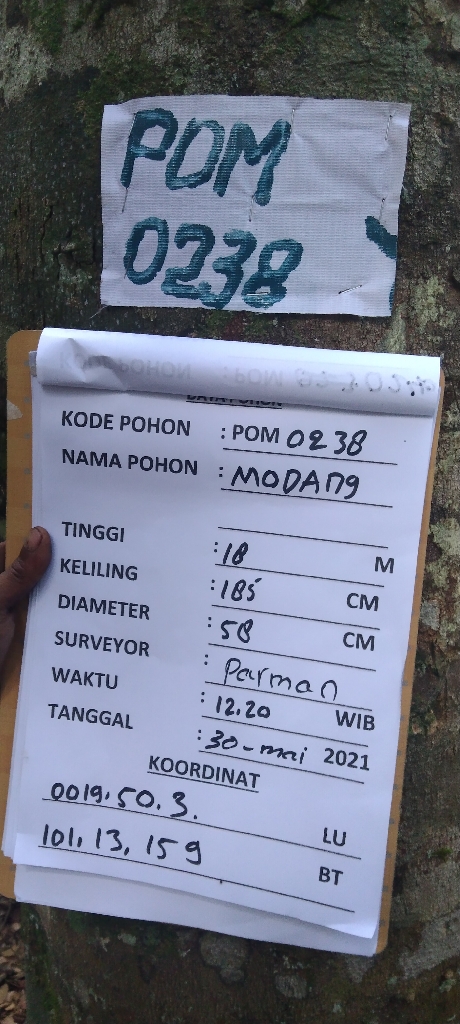 POM
0238
DATA POHON
KODE POHON : POM 0238
NAMA POHON : MODANg
TINGGI : 18 M
KELILING : 185 CM
DIAMETER : 58 CM
SURVEYOR : Parman
WAKTU : 12.20 WIB
TANGGAL : 30-mai 2021
KOORDINAT
0019.50.3. LU
101.13.159 BT